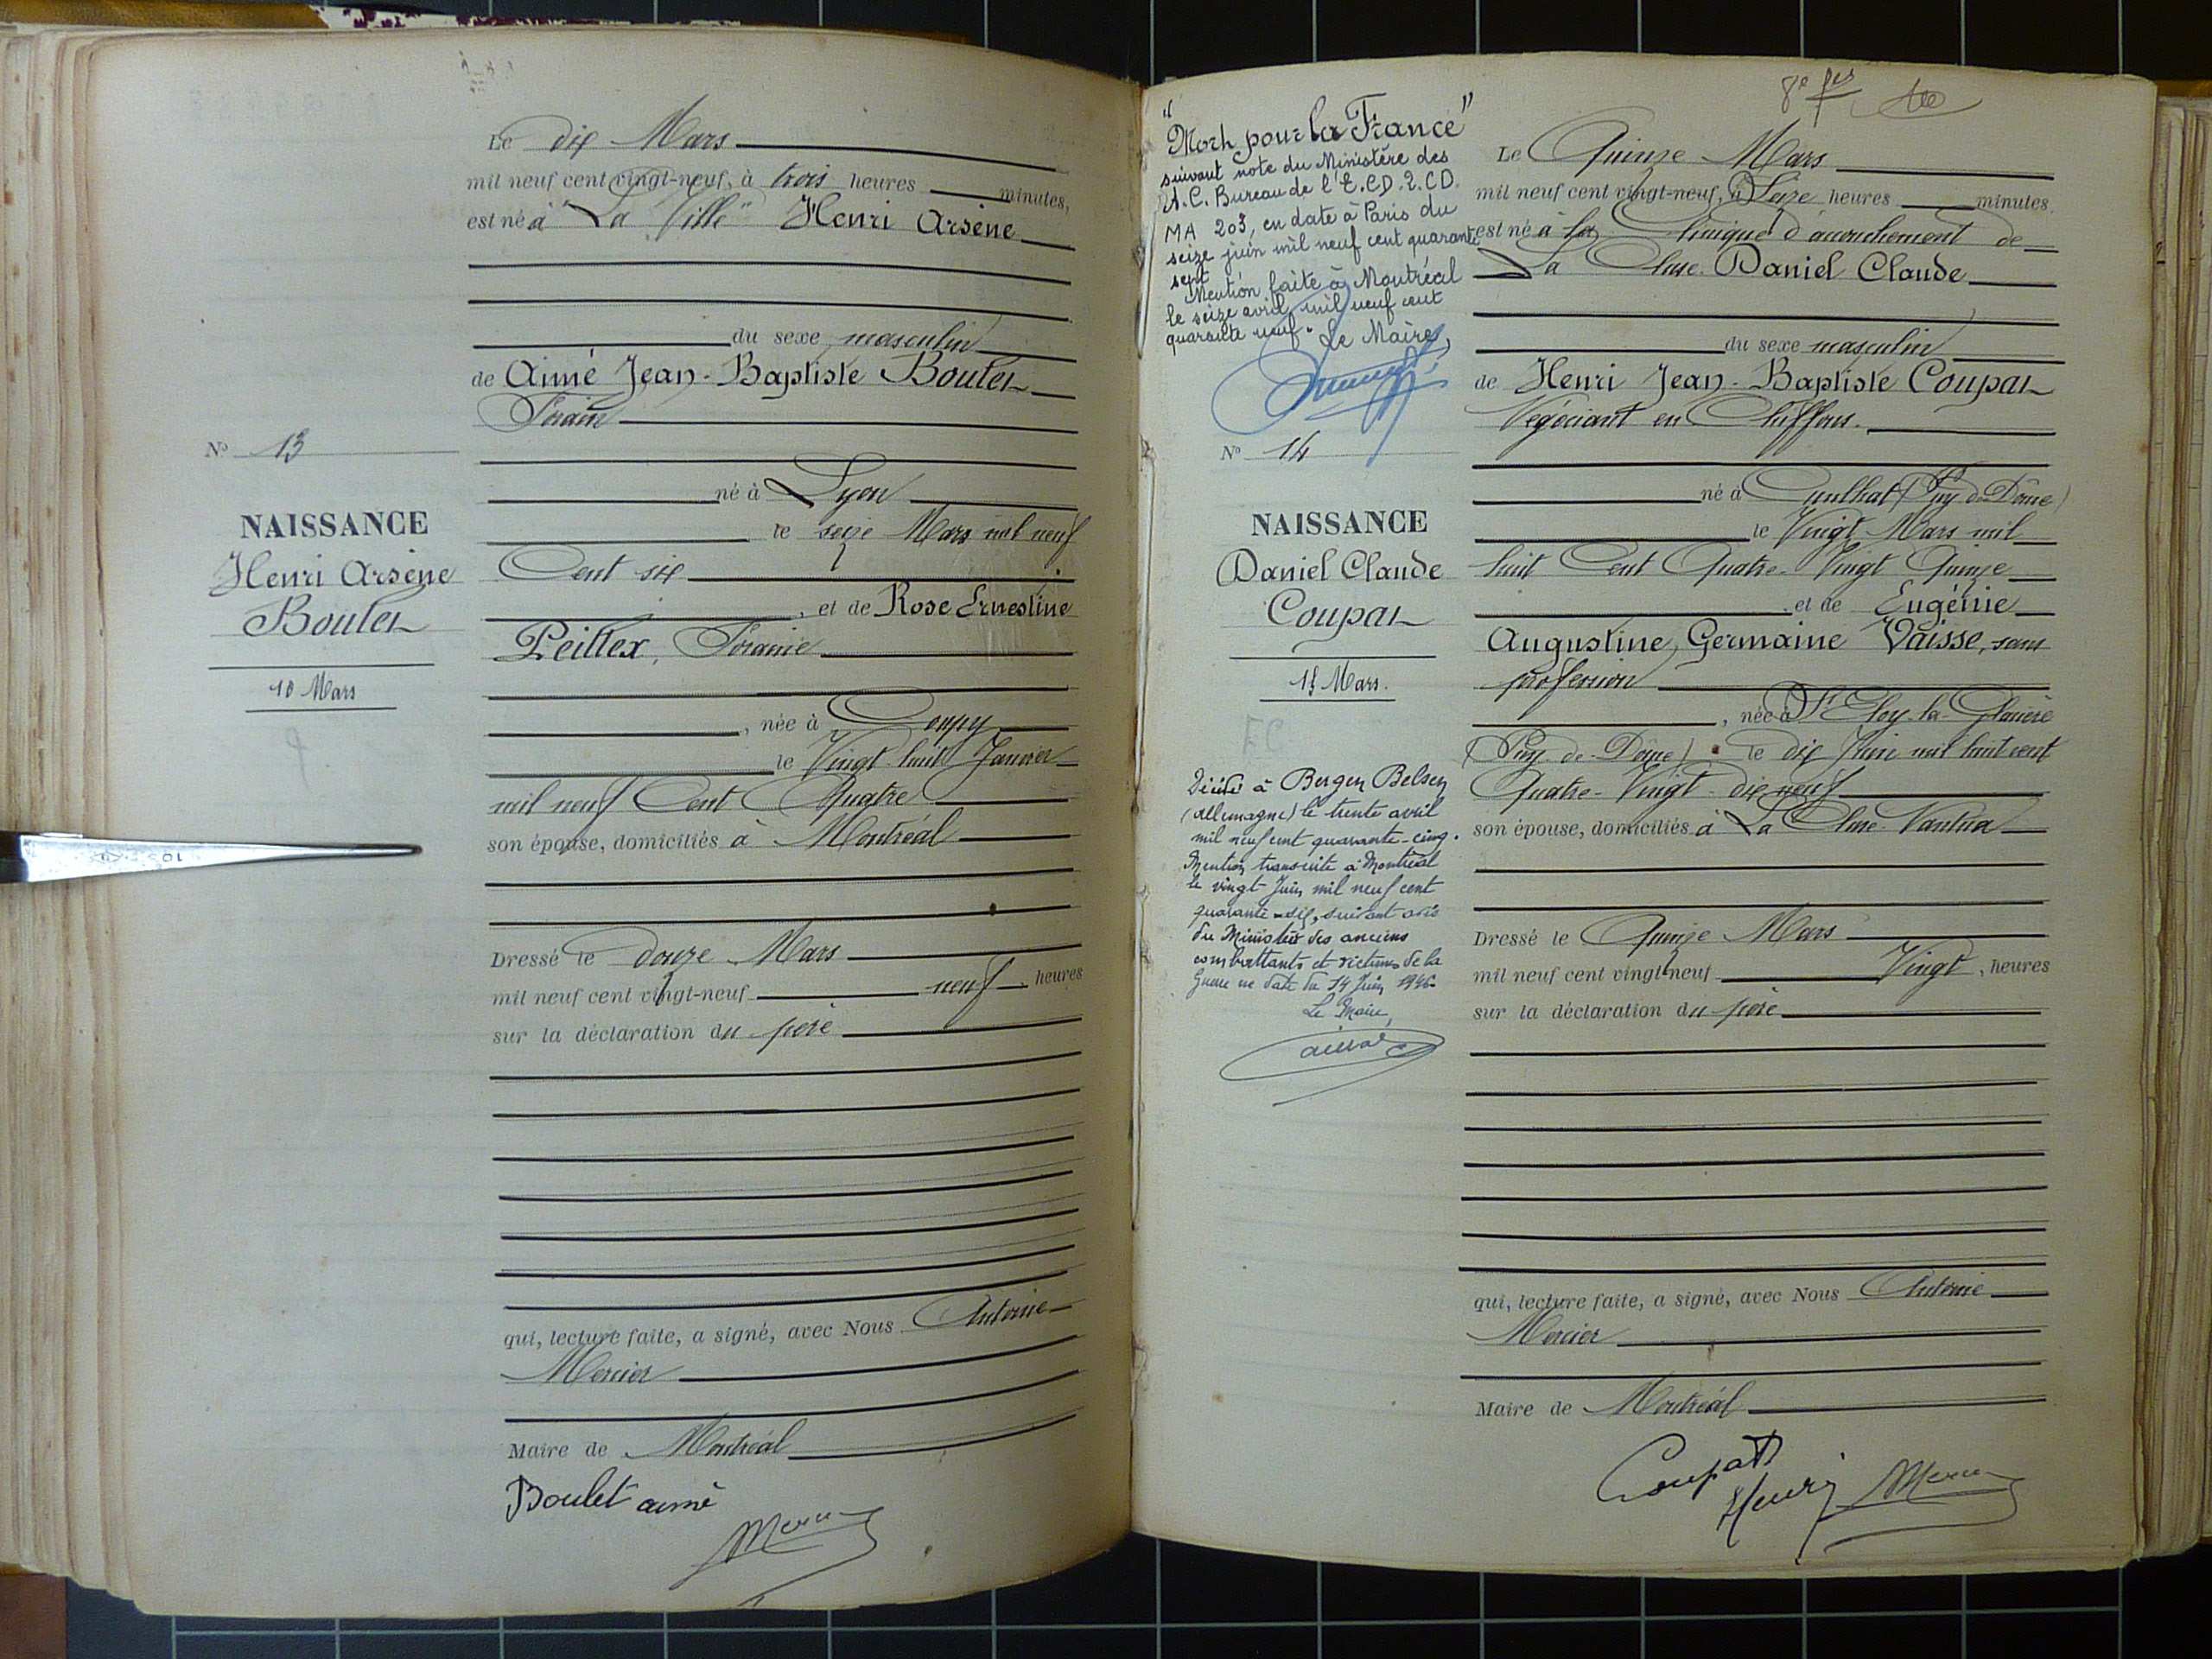 Le dix Mars
mil neuf cent vingt-neuf, à trois heures minutes,
est né à "La Ville" Henri Arsène
du sexe masculin
de Aimé Jean-Baptiste Boulet
Forain
né à Lyon
le seize Mars mil neuf
Cent six
, et de Rose Ernestine
Peillex, Foraine
, née à
le Vingt-huit Janvier
mil neuf Cent Quatre
son épouse, domiciliés à Montréal
Dressé le douze Mars
mil neuf cent vingt-neuf neuf, heures
sur la déclaration du père
qui, lecture faite, a signé, avec Nous Antoine
Mercier
Maire de Montréal
Boulet aimé
N° 13
NAISSANCE
Henri Arsène
Boulet
10 Mars
8e
"Mort pour la France"
suivant note du Ministère des
A.C. Bureau de l'E.C.D.2.CD.
MA 203, en date à Paris du
seize juin mil neuf cent quarante
sept
Mention faite à Montréal
le seize avril mil neuf cent
quarante neuf. Le Maire,
N° 14
NAISSANCE
Daniel Claude
Coupat
15 Mars.
Décédé à Bergen Belsen
(Allemagne) le trente avril
mil neuf cent quarante-cinq.
Mention transcrite à Montréal
le vingt Juin mil neuf cent
quarante-six, suivant avis
du Ministère des anciens
combattants et victimes de la
Guerre en date du 14 Juin 1946.
Le Maire,
Le Quinze Mars
mil neuf cent vingt-neuf, à Seize heures minutes.
est né à la Clinique d'accouchement de
La Cluse Daniel Claude
du sexe masculin
de Henri Jean-Baptiste Coupat
Négociant en Chiffons.
né à Cunlhat (Puy-de-Dôme)
le Vingt Mars mil
huit Cent Quatre-Vingt Quinze
, et de Eugénie
Augustine, Germaine Vaisse, sans
profession
, née à St Eloy-la-Glacière
(Puy-de-Dôme), le dix Juin mil huit cent
Quatre-Vingt-dix neuf
son épouse, domiciliés à La Cluse Nantua
Dressé le Quinze Mars
mil neuf cent vingt-neuf Vingt, heures
sur la déclaration du père
qui, lecture faite, a signé, avec Nous Antoine
Mercier
Maire de Montréal
Coupat
Henri